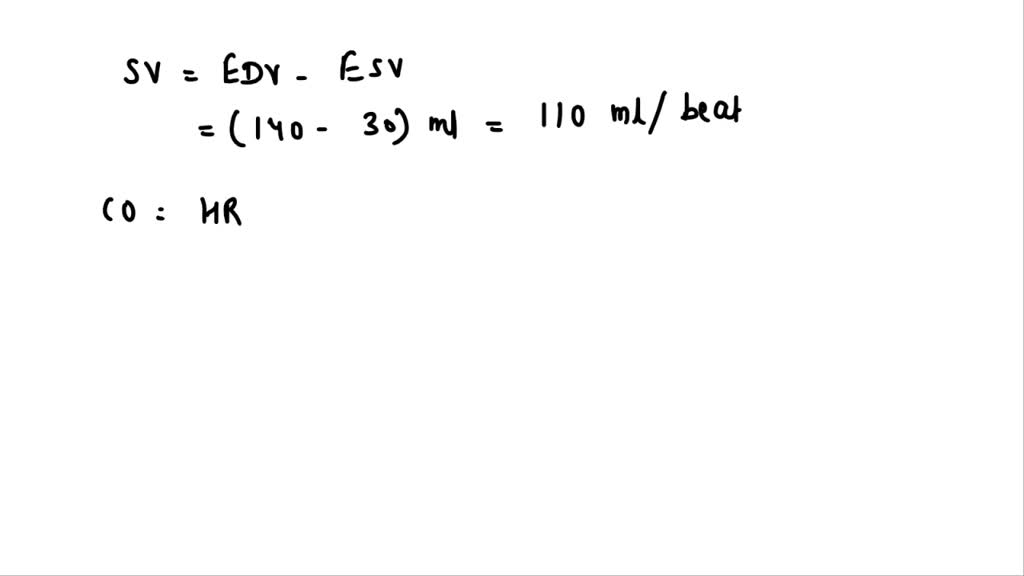 SV = EDV - ESV
= (140 - 30) ml = 110 ml/beat
CO = HR